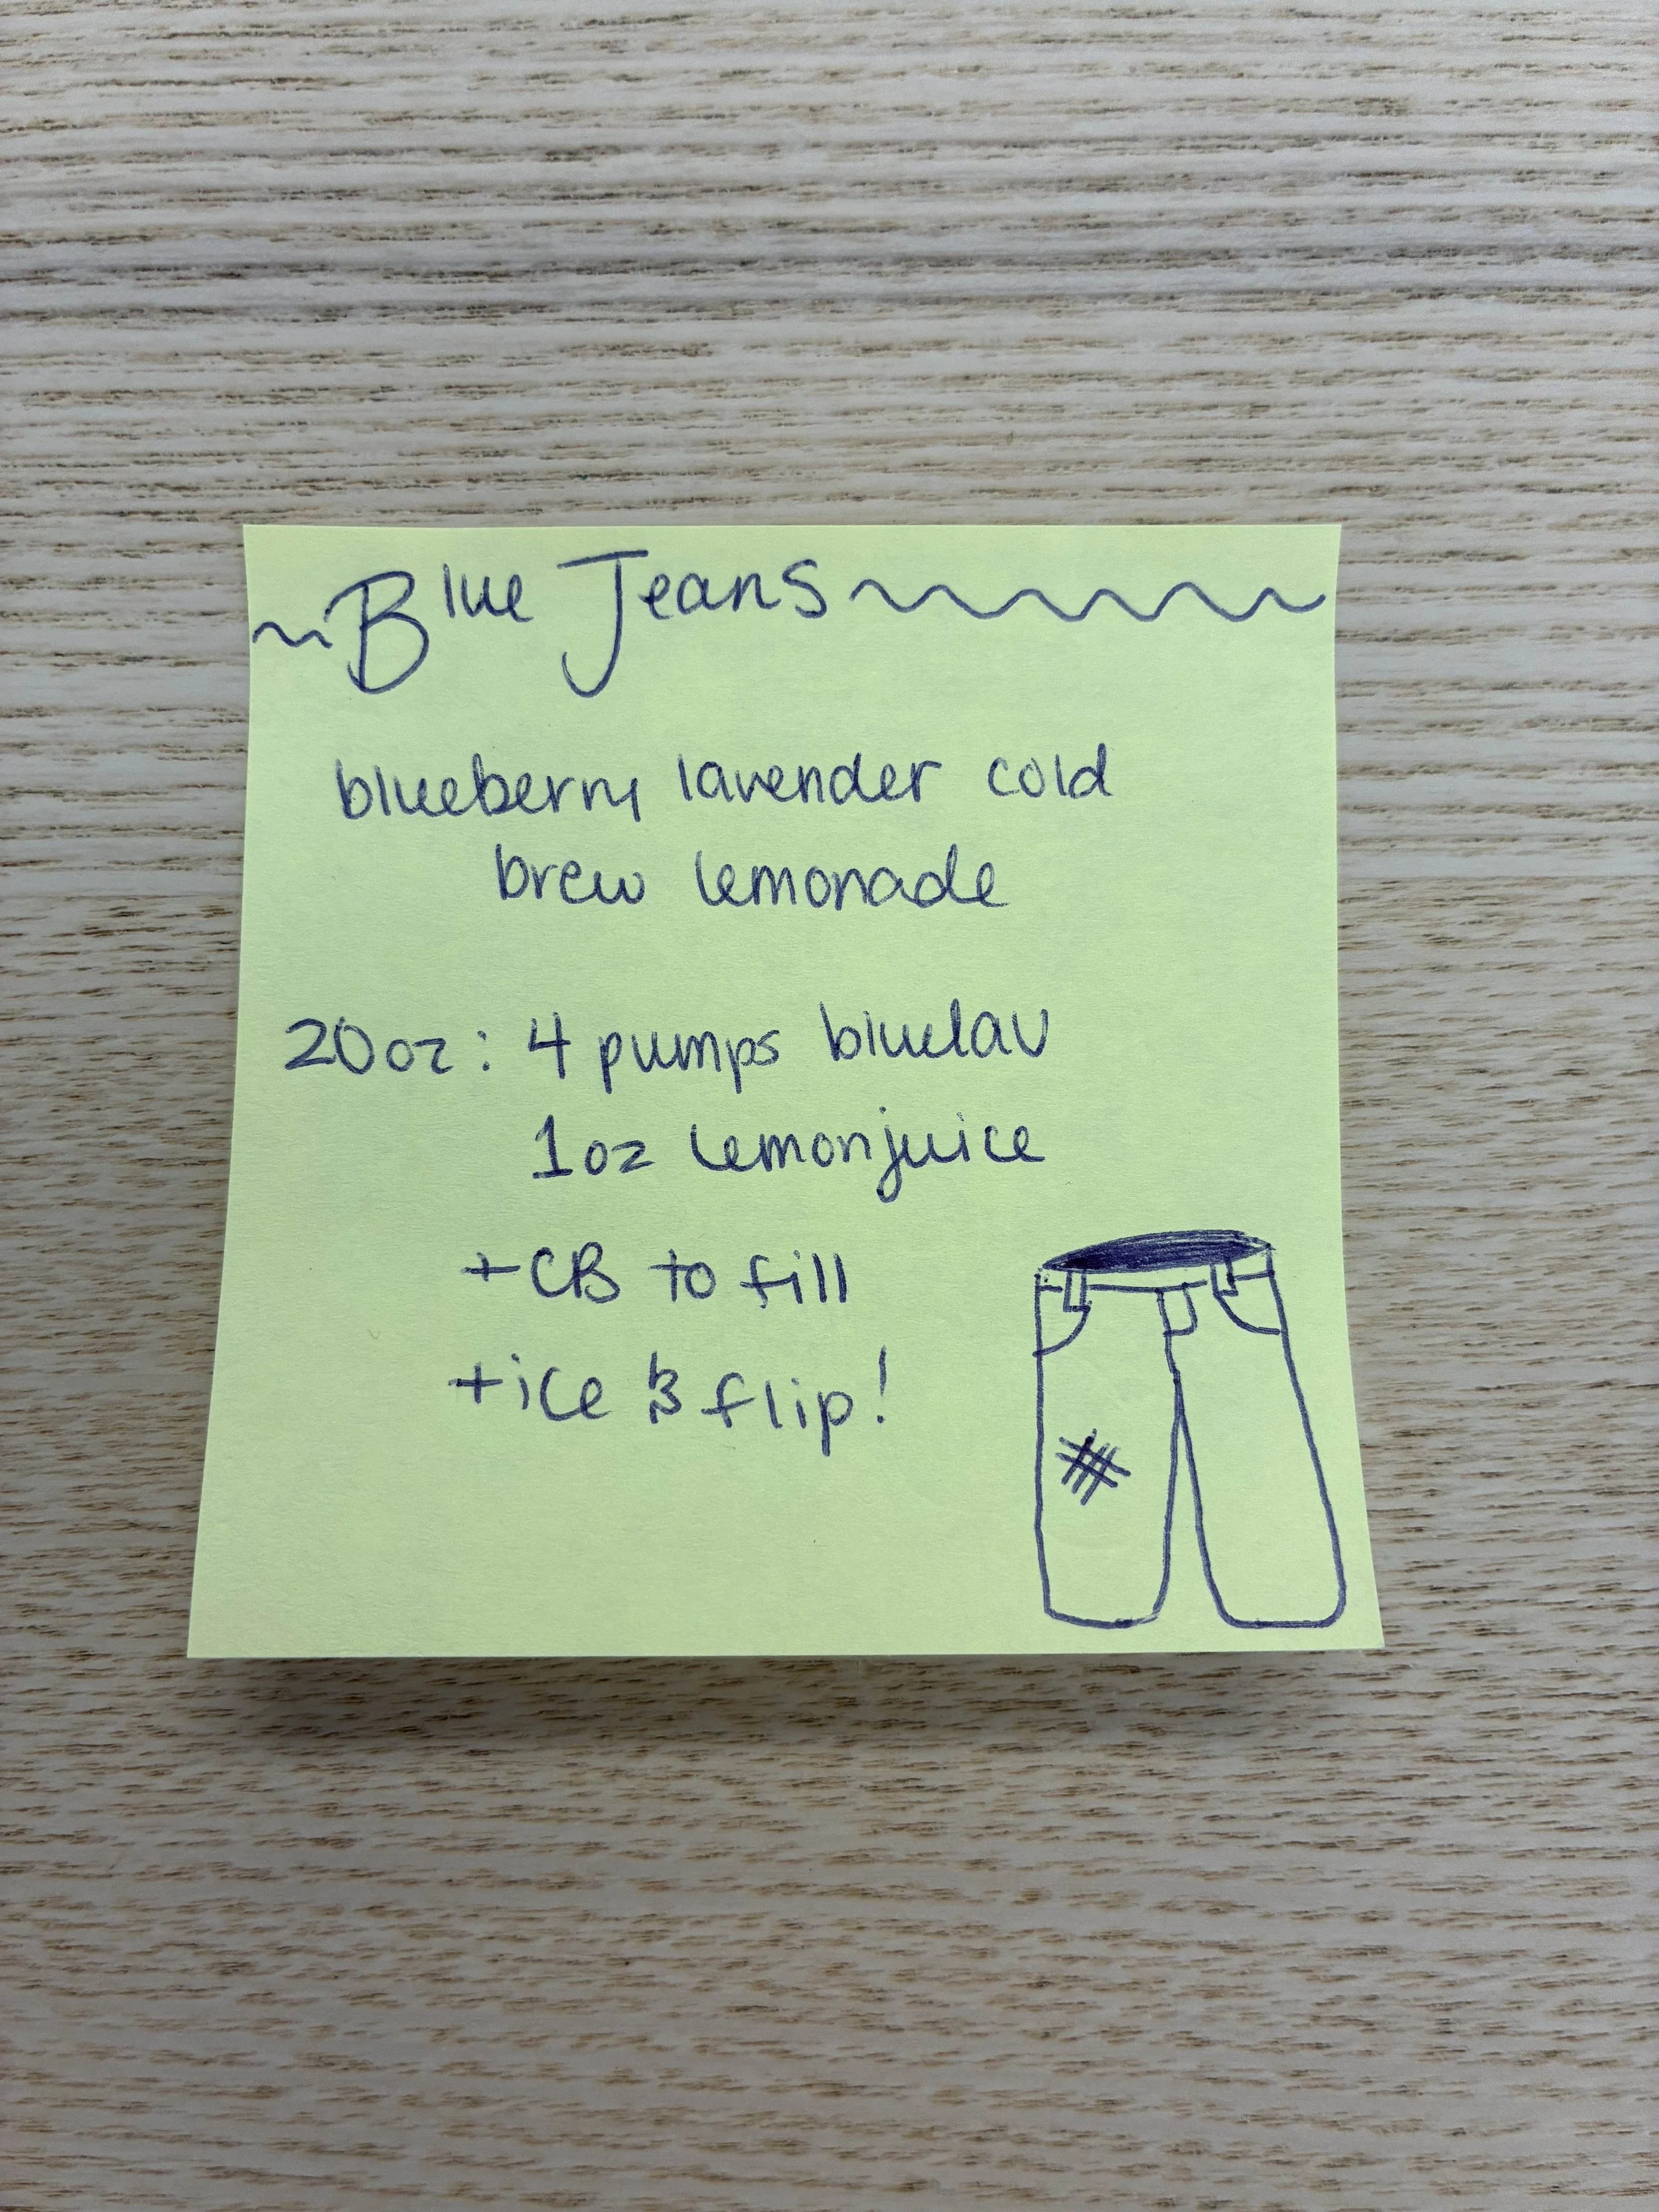 Blue Jeans
blueberry lavender cold
brew lemonade
20oz: 4 pumps bluelav
1oz lemonjuice
+CB to fill
+ice & flip!